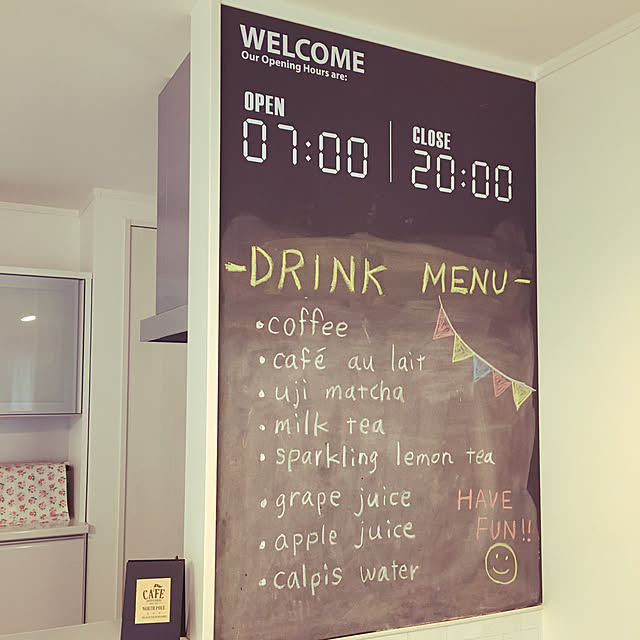 WELCOME
Our Opening Hours are:
OPEN
07:00
CLOSE
20:00
-DRINK MENU-
•coffee
•café au lait
•uji matcha
•milk tea
•sparkling lemon tea
•grape juice
•apple juice
•calpis water
HAVE
FUN!!
CAFE
NORTH POLE